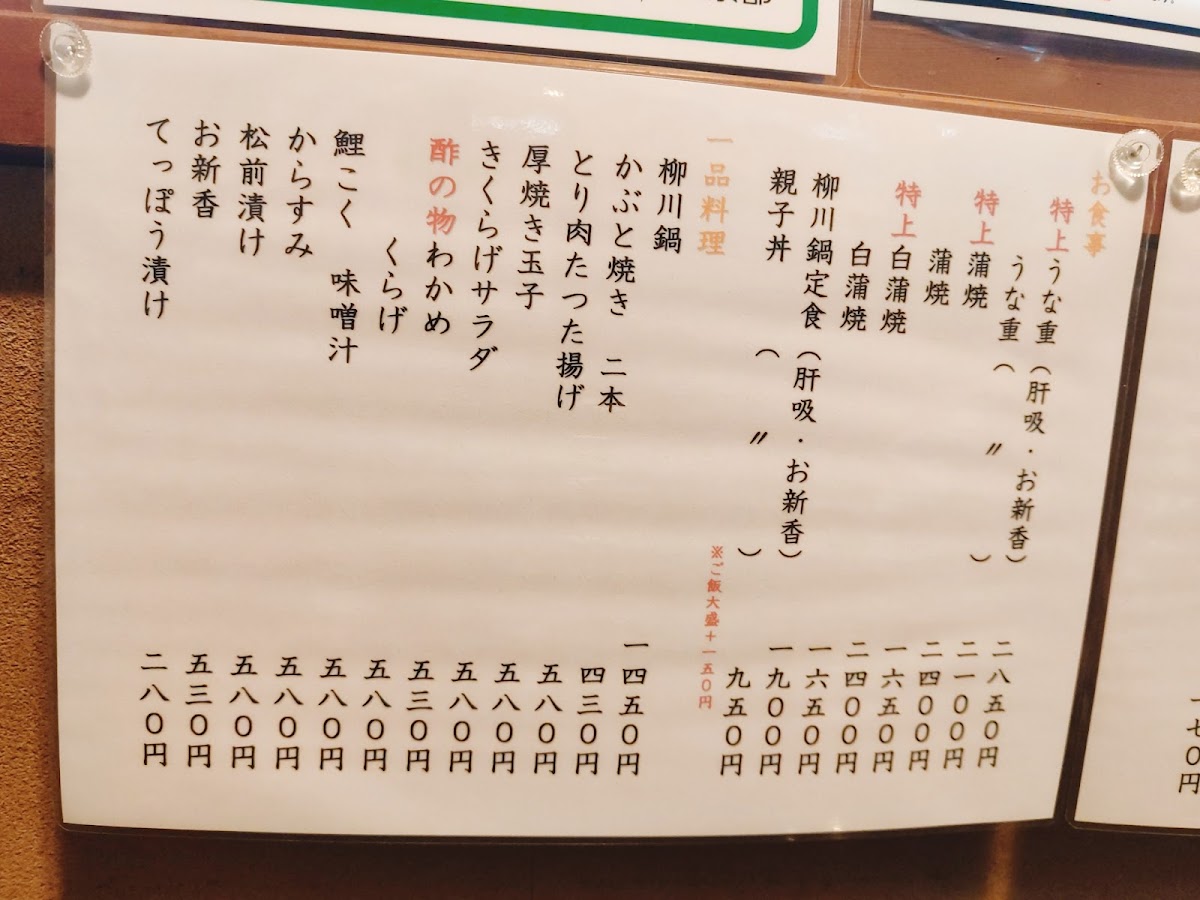 お食事
特上うな重（肝吸・お新香） 二八五〇円
うな重（ 〃 ） 二一〇〇円
特上蒲焼 二四〇〇円
蒲焼 一六五〇円
特上白蒲焼 二四〇〇円
白蒲焼 一六五〇円
柳川鍋定食（肝吸・お新香） 一九〇〇円
親子丼（ 〃 ） 九五〇円
※ご飯大盛＋一五〇円
一品料理
柳川鍋 一四五〇円
かぶと焼き 二本 四三〇円
とり肉たつた揚げ 五八〇円
厚焼き玉子 五八〇円
きくらげサラダ 五八〇円
酢の物わかめ 五三〇円
くらげ 五八〇円
鯉こく 味噌汁 五八〇円
からすみ 五八〇円
松前漬け 五八〇円
お新香 五三〇円
てっぽう漬け 二八〇円
七〇円